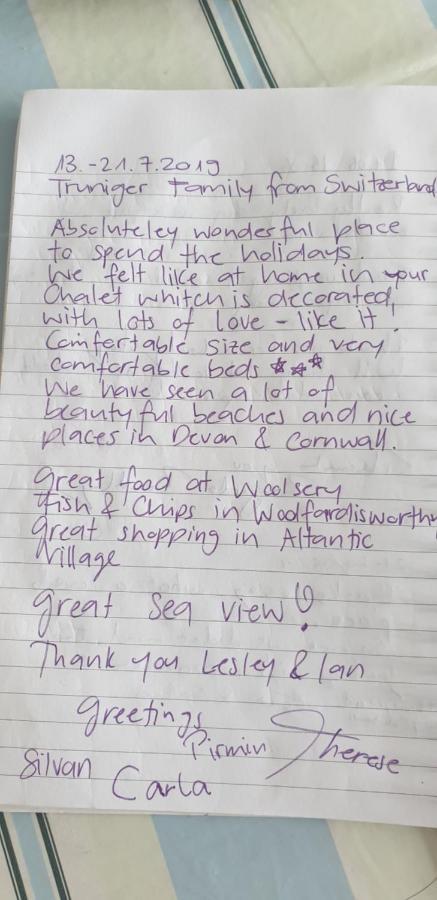 13.-21.7.2019
Truniger Family from Switzerland
Absoluteley wonderful place
to spend the holidays.
We felt like at home in your
Chalet whitch is decorated,
with lots of love - like it!
Comfertable size and very
comfortable beds ***
We have seen a lot of
beautyful beaches and nice
places in Devon & Cornwall.
Great food at Woolsery
Fish & Chips in Woolfardisworthy
Great shopping in Altantic
Village
Great sea view!
Thank you Lesley & Ian
Greetings
Pirmin Therese
Silvan
Carla